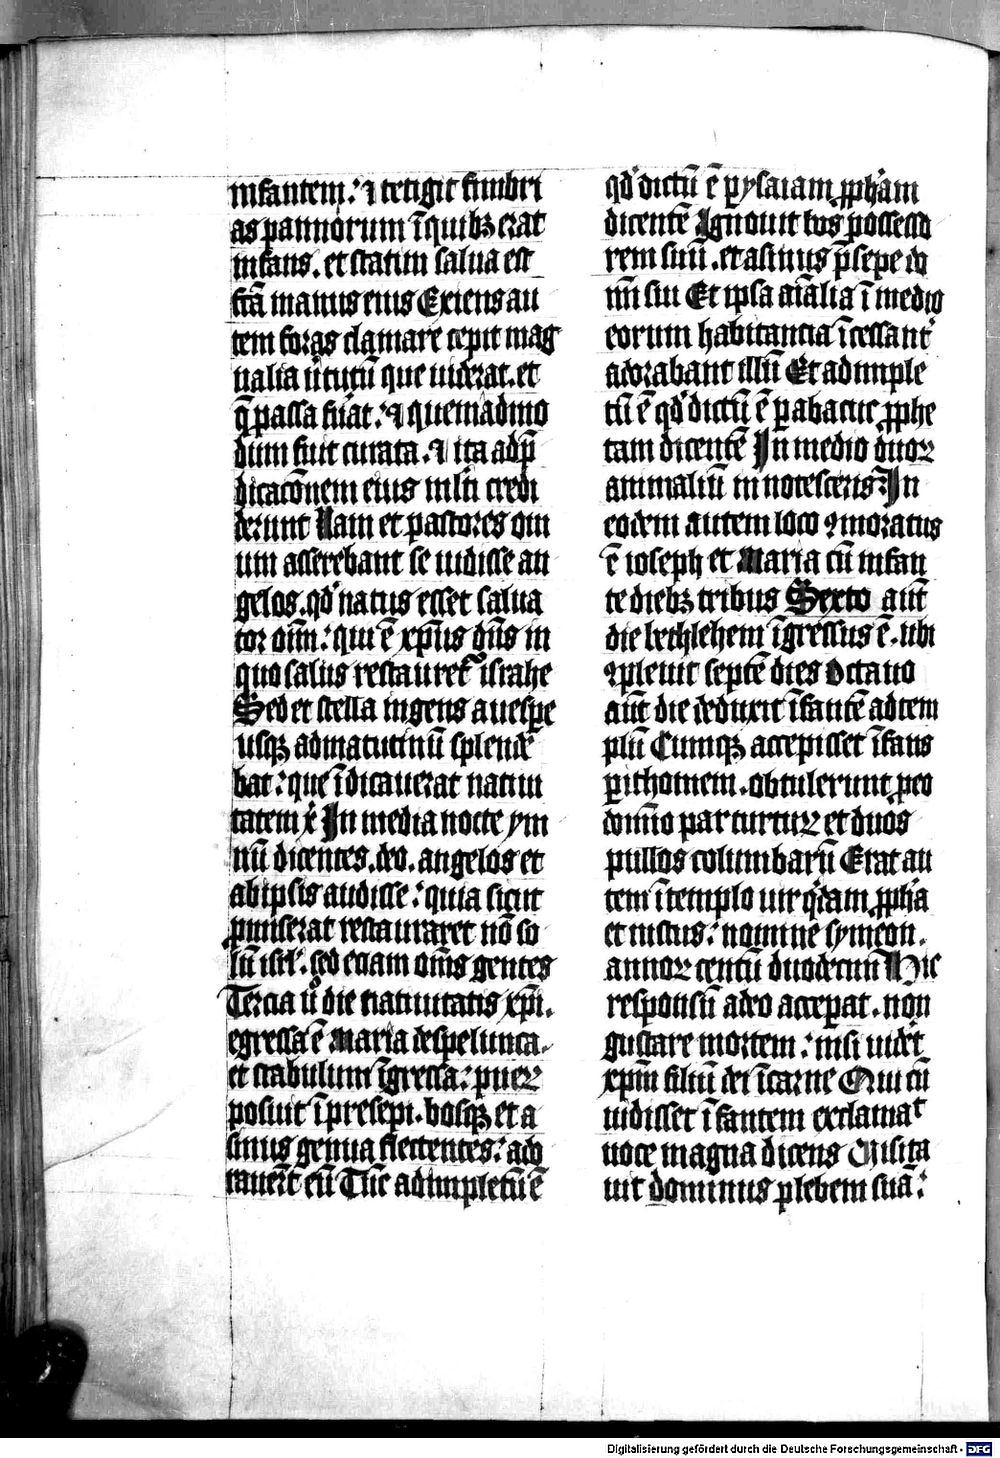 infantem: ⁊ tetigit fimbri
as pannorum ī quibꝫ erat
infans. et statim salua est
fc̄ā manus eius Exiens au
tem foras clamare cepit mag
nalia v̓tutū que uiderat. et
q̄ passa fu̓at: ⁊ quemādmo
dum fuit curata. ⁊ ita ad p̄
dicacōnem eius ml̄ti credi
derunt Nam et pastores oui
um asserebant se uidisse an
gelos. qd̓ natus esset salua
tor oīm: qui ē xp̄us dn̄s in
quo salus restauret᷑ israhe
Sed et stella ingens a uespe
usqꝫ ad matutinū splende
bat: que īdicauerat natiui
tatem x̓ In media nocte ym
nū dicentes. deo. angelos et
ab ipsis audisse: quia sicut
ꝓmiserat restauraret nō so
lū isrl̓. sed eciam om̄s gentes
Tercia v̓o die natiuitatis xp̄i.
egressa ē Maria de spelunca.
et stabulum īgressa: pueꝝ
posuit ī presepi. bosqꝫ et a
sinus genua flectentes: ado
rauer̄t eū Tūc adimpletū ē
qd̓ dictū ē ꝑ ysaiam ꝓph̓am
dicentē Agnouit bos possesso
rem suū. et asinus p̄sepe do
mī sui Et ipsa aīalia ī medio
eorum habitancia īcessant̓
adorabant illū Et adimple
tū ē qd̓ dictū ē ꝑ abacuc ꝓphe
tam dicentē In medio duoꝝ
animaliū innotescens: In
eodem autem loco ꝯmoratus
ē ioseph et Maria cū infan
te diebꝫ tribus Sexto aūt
die bethlehem īgressus ē. ubi
ꝯpleuit septē dies Octauo
aūt die deduxit īfantē ad tem
plū Cumqꝫ accepisset īfans
ꝑithomem. obtulerunt ꝓ eo
domīo par turtuꝝ et duos
pullos columbarū Erat au
tem ī templo uir q̓dam ꝓph̓a
et iustus: nomine symeon.
annoꝝ centū duodecim Hic
responsū a deo acceꝑat. non
gustare mortem: nisi uidet̓
xpm̄ filiū dei ī carne Qui cū
uidisset īfantem exclamat
uoce magna dicens Uisita
uit dominus plebem suā:
Digitalisierung gefördert durch die Deutsche Forschungsgemeinschaft - DFG